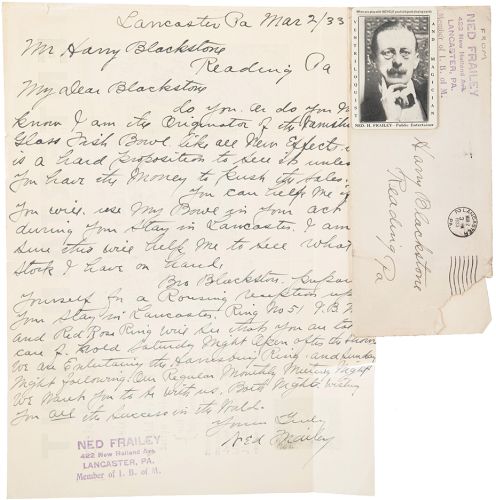 Lancaster Pa Mar 2/33
Mr. Harry Blackstone
Reading Pa
My Dear Blackstone
do you or do you
know I am the Originator of the Vanishing
Glass Fish Bowl. like all New Effects
is a hard proposition to sell it unless
You have the Money to push the sales.
You can help me if
You will use My Bowl in Your act
during Your Stay in Lancaster. I am
sure this will help Me to sell what
stock I have on hand.
Bro Blackstone. Prepare
Yourself for a Rousing reception upon
Your Stay in Lancaster. Ring No 51 I.B.M.
and Red Rose Ring will see that You are taken
care of. Saturday Night after the Show
We are Entertaining the Harrisburg Ring. and Sunday
Night following Our Regular Monthly Meeting Night
We Want You to be with us. Both Nights wishing
You all the Success in the World.
Yours Truly
Ned Frailey
NED FRAILEY
422 New Holland Ave.
LANCASTER, PA.
Member of I. B. of M.
VENTRILOQUIST
AND MAGICIAN
NED. H. FRAILEY - Public Entertainer
FROM
NED FRAILEY
422 New Holland Ave.
LANCASTER, PA.
Member of I. B. of M.
Harry Blackstone
Reading
Pa
LANCASTER